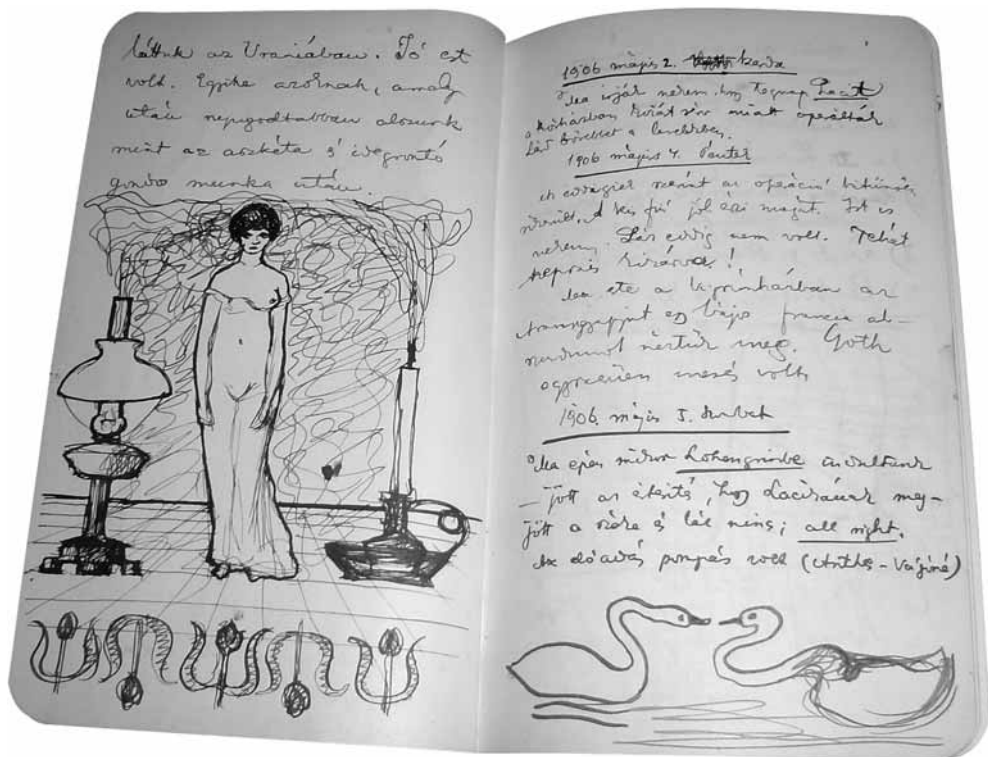 láttuk az Urániában. Jó est
volt. Egyike azoknak, amely
után nyugodtabban alszunk
mint az aszkéta s' idegrontó
gondos munka után.
1906 május 2. szerda
Ma írják nekem, hogy tegnap Lacit
a kórházban miatt operálták
Lásd bővebbet a levelekben.
1906 május 4. Péntek
szerint az operáció kitünően
sikerült. A kis fiú jól érzi magát. Itt is
Láz eddig nem volt. Tehát
kizárva!
Ma este a Vígszínházban az
egy bájos francia ab-
néztük meg. Góth
egyszerüen volt.
1906. május 5. Szombat
Ma épen mikor Lohengrinbe indultunk
– jött az értesítés, hogy Lacikának meg-
jött a széke és láz nincs; all right.
Az előadás pompás volt (Anthes – Vasquezné)